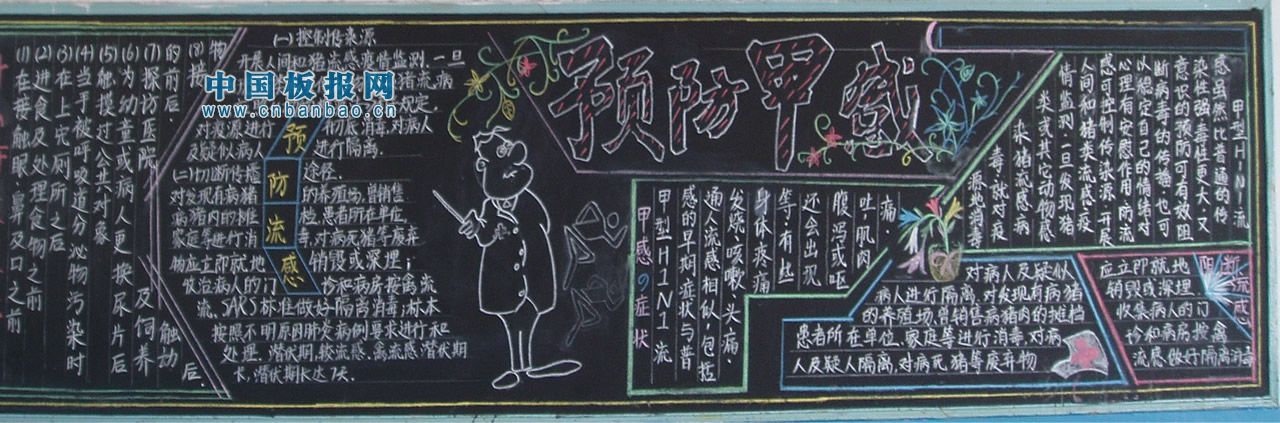 预防甲感
中国板报网
www.cnbanbao.cn
(1)在接触眼、鼻及口之前
(2)进食及处理食物之前
(3)在上完厕所之后
(4)当手被呼吸道分泌物污染时
(5)触摸过公共对象
(6)为幼童或病人更换尿片后
(7)探访医院及饲养
的前后.
(8)触动
物后.
(一)控制传染源
开展人间和猪流感疫情监测.一旦
猪流病
规定,
对疫源进行彻底消毒,对病人
及疑似病人进行隔离.
预防流感
(二)切断传播途径.
对发现有病猪的养殖场,曾销售
病猪肉的摊档,患者所在单位,
家庭等进行消毒,对病死猪等废弃
物应立即就地销毁或深埋;
收治病人的门诊和病房按禽流
流、SARS标准做好隔离消毒;标本
按照不明原因肺炎病例要求进行和
处理.潜伏期,较流感、禽流感潜伏期
长,潜伏期长达7天.
甲感的症状
甲型H1N1流
感的早期症状与普
通人流感相似,包括
发烧、咳嗽、头痛、
身体疼痛
等,有些
还会出现
腹泻或呕
吐、肌肉
痛.
甲型H1N1流
感虽然比普通的传
染性强,毒性更大,又
意识的预防可有效阻
断病毒的传播,也可
以稳定自己的情绪,对
心理有安慰作用.防流
感可控制传染源,开展
人间和猪类流感疫
情监测,一旦发现猪
类或其它动物感
染猪流感病
毒,就对疫
源地消毒
对病人及疑似
病人进行隔离.对发现有病猪
的养殖场,曾销售病猪肉的摊档
患者所在单位、家庭等进行消毒,对病
人及疑人隔离,对病死猪等废弃物
阻断流感
应立即就地
销毁或深埋.
收集病人的门
诊和病房按禽
流感做好隔离消毒